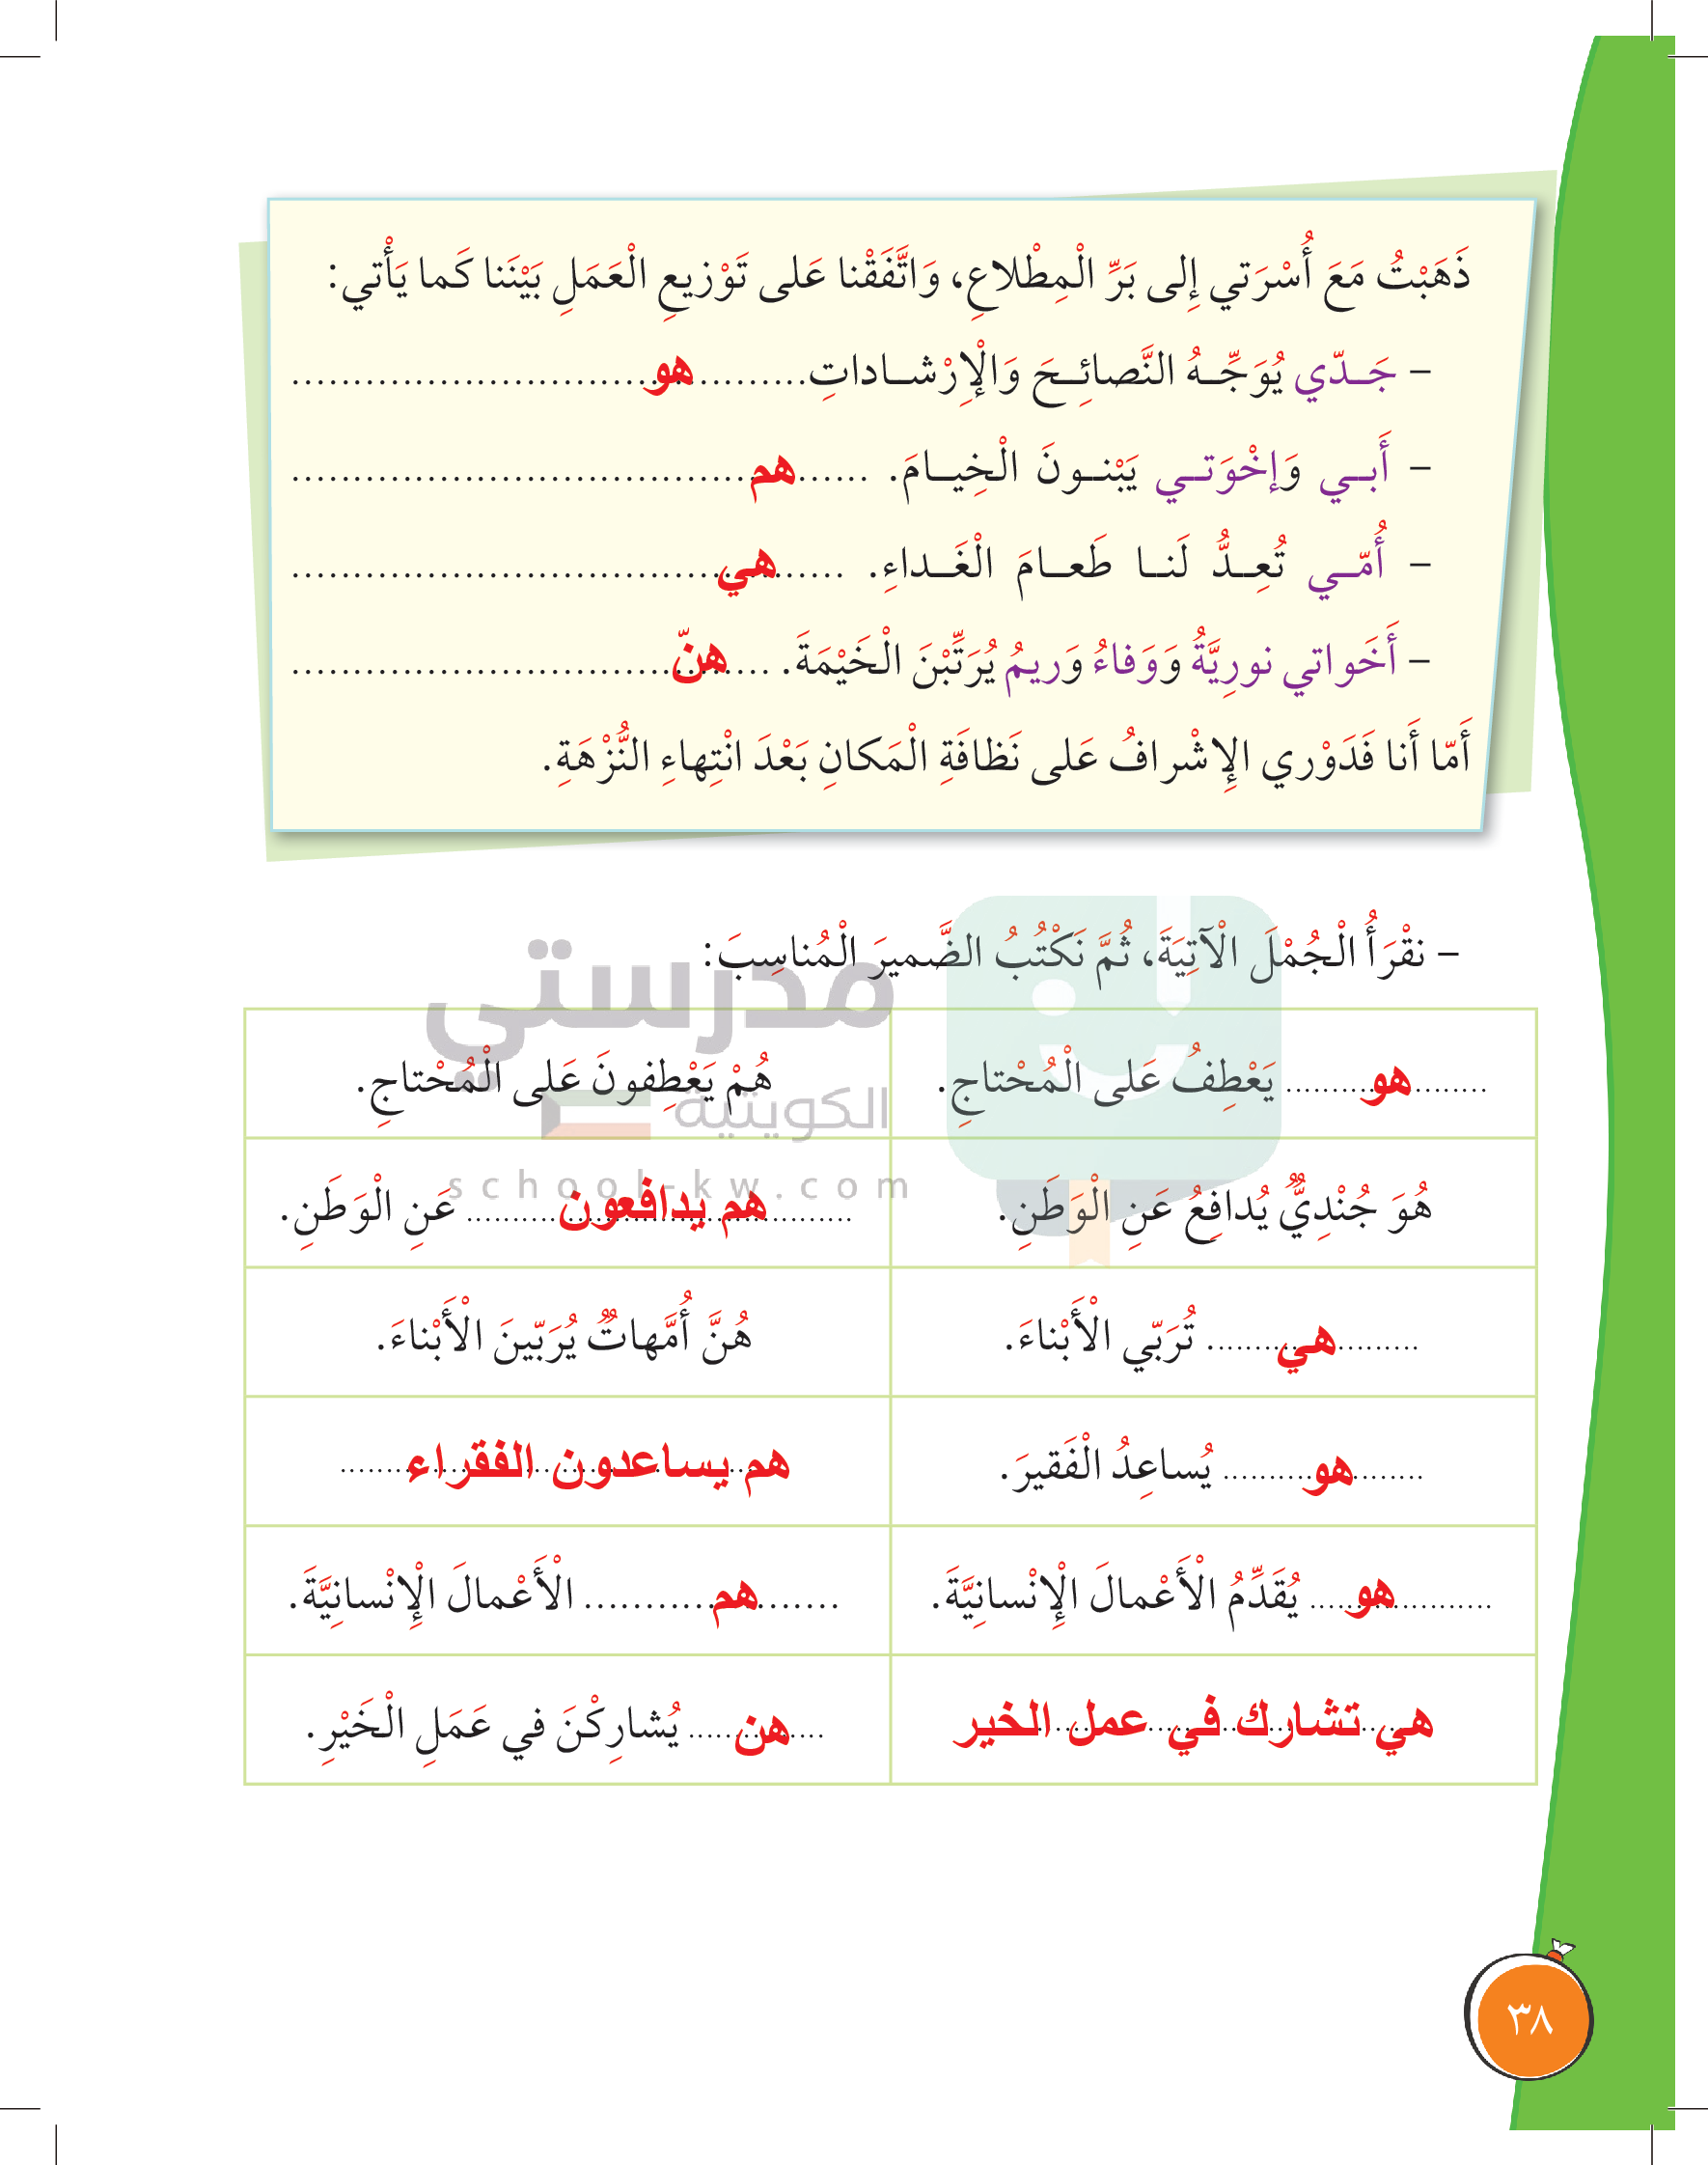 ذَهَبْتُ مَعَ أُسْرَتي إِلى بَرِّ الْمِطْلاعِ، وَاتَّفَقْنا عَلى تَوْزيعِ الْعَمَلِ بَيْنَنا كَما يَأْتي:
– جَـدّي يُوَجِّـهُ النَّصائِـحَ وَالْإِرْشـاداتِ.......... هو ..............................
– أَبـي وَإخْوَتـي يَبْنـونَ الْخِيـامَ. ..... هم ..............................
– أُمّـي تُعِـدُّ لَنـا طَعـامَ الْغَـداءِ. ..... هي ..............................
– أَخَواتي نورِيَّةُ وَوَفاءُ وَريمُ يُرَتِّبْنَ الْخَيْمَةَ. ..... هنّ ..............................
أَمّا أَنا فَدَوْري الإِشْرافُ عَلى نَظافَةِ الْمَكانِ بَعْدَ انْتِهاءِ النُّزْهَةِ.
– نَقْرَأُ الْجُمْلَ الْآتِيَةَ، ثُمَّ نَكْتُبُ الضَّميرَ الْمُناسِبَ:
مدرستي
الكويتية
school-kw.com
..... هو ..... يَعْطِفُ عَلى الْمُحْتاجِ. هُمْ يَعْطِفونَ عَلى الْمُحْتاجِ.
هُوَ جُنْدِيٌّ يُدافِعُ عَنِ الْوَطَنِ. ..... هم يدافعون ..... عَنِ الْوَطَنِ.
..... هي ..... تُرَبّي الْأَبْناءَ. هُنَّ أُمَّهاتٌ يُرَبّينَ الْأَبْناءَ.
..... هو ..... يُساعِدُ الْفَقيرَ. هم يساعدون الفقراء .....
..... هو ..... يُقَدِّمُ الْأَعْمالَ الْإِنْسانِيَّةَ. ..... هم ..... الْأَعْمالَ الْإِنْسانِيَّةَ.
هي تشارك في عمل الخير ..... هن ..... يُشارِكْنَ في عَمَلِ الْخَيْرِ.
٣٨